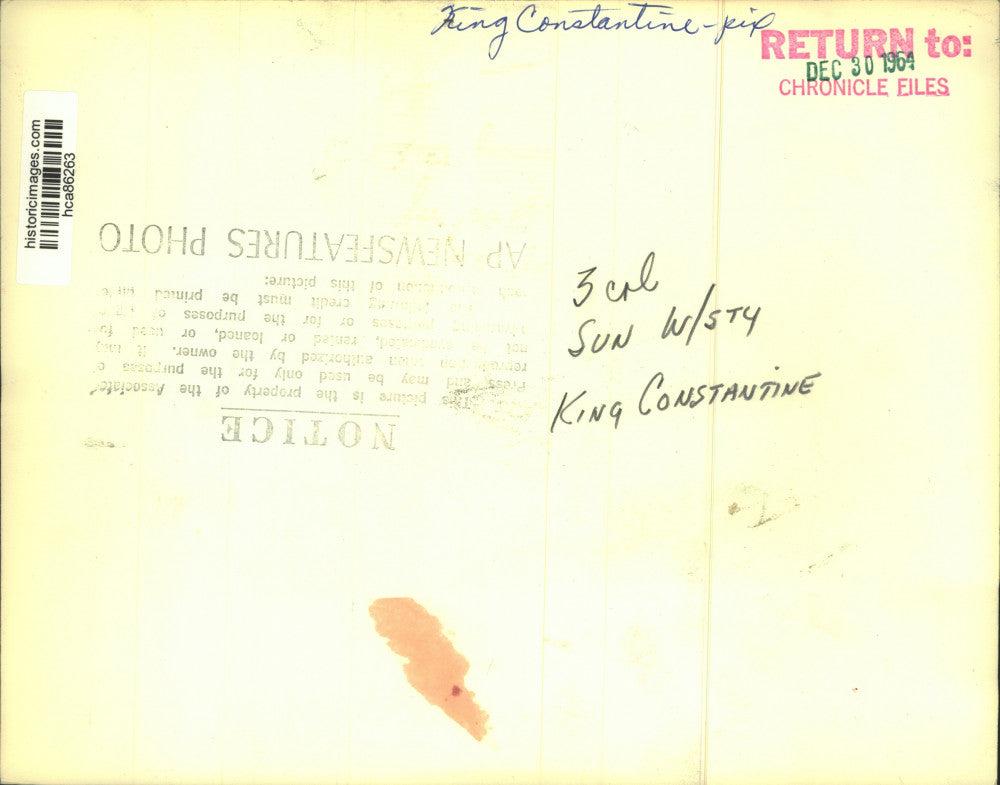 King Constantine-pix
RETURN to:
DEC 30 1964
CHRONICLE FILES
historicimages.com
hca86263
3 col
SUN W/STY
KING CONSTANTINE
NOTICE
This picture is the property of the Associated
Press and may be used only for the purposes of
when authorized by the owner. It may
not be syndicated, rented or loaned, or used for
purposes or for the purposes of
credit must be printed
each of this picture:
AP NEWSFEATURES PHOTO